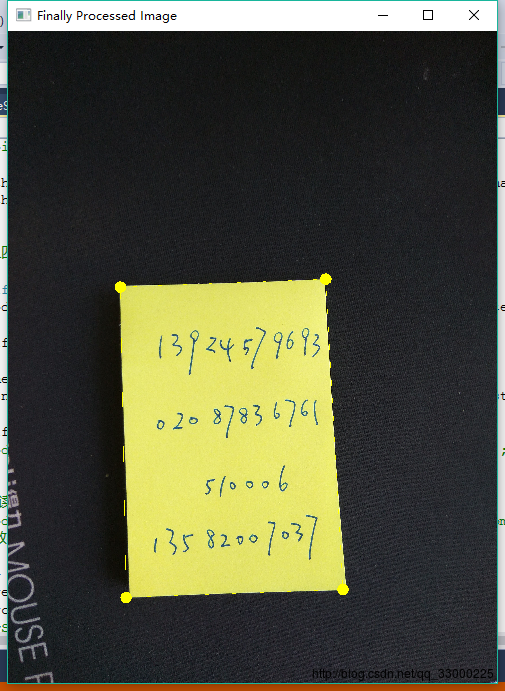 Finally Processed Image
13924579693
020 87836761
510006
13582007037
MOUSE
http://blog.csdn.net/qq_33000225